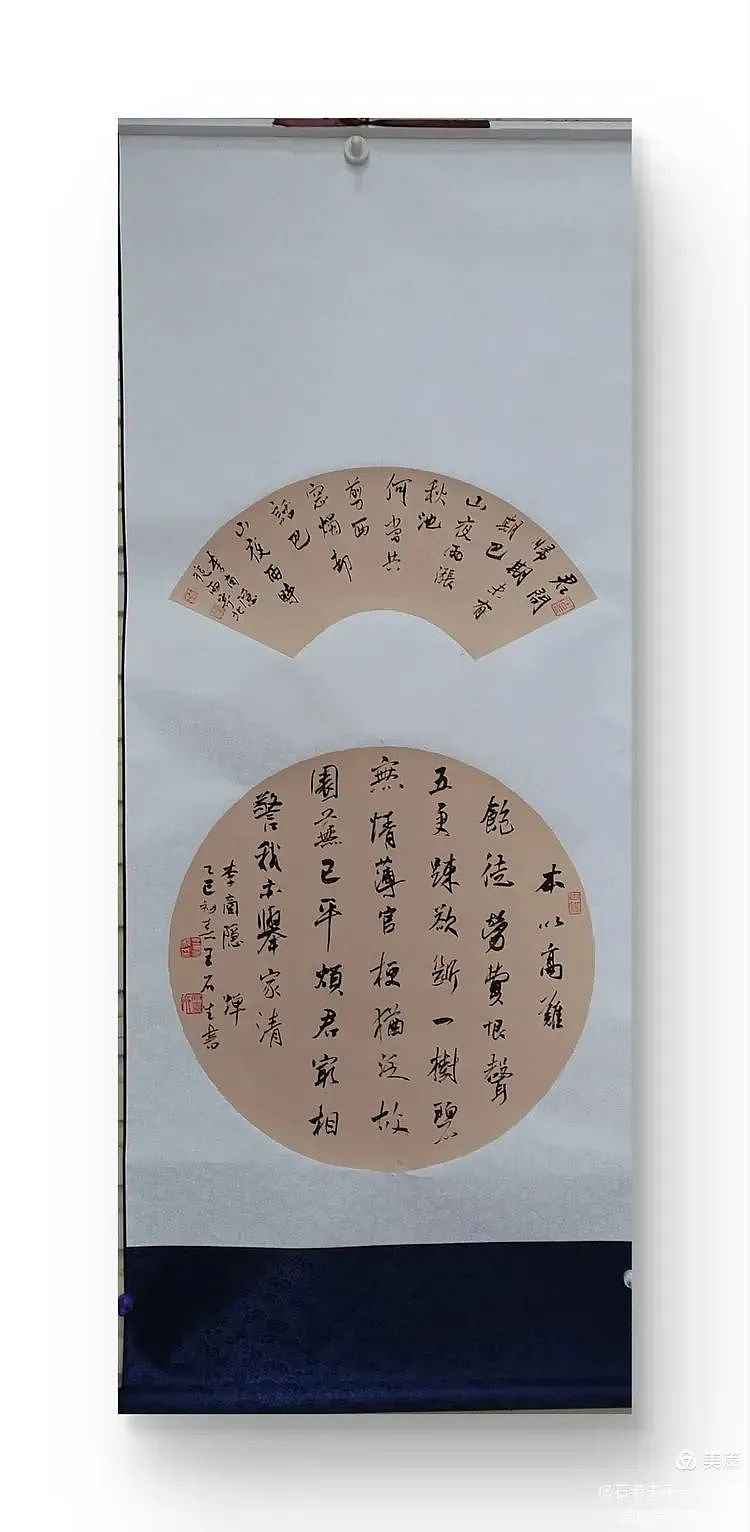 君問
歸期未有
期巴
山夜雨漲
秋池
何當共
剪西
窗燭却
話巴
山夜雨時
李商隱
夜雨寄北
本以高難
飽徒勞費恨聲
五更踈欲斷一樹碧
無情薄官梗猶泛故
園蕪已平煩君最相
警我亦舉家清
李商隱 蟬
乙巳初王石生書
美篇
@石老夫子